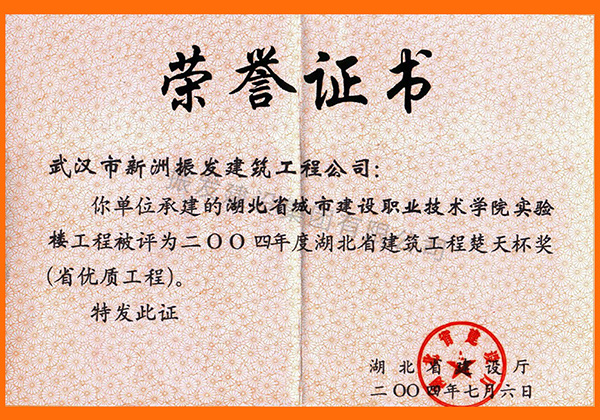 荣誉证书
武汉市新洲振发建筑工程公司:
你单位承建的湖北省城市建设职业技术学院实验
楼工程被评为二〇〇四年度湖北省建筑工程楚天杯奖
(省优质工程)。
特发此证
湖北省建设厅
二〇〇四年七月六日
湖北省建设厅